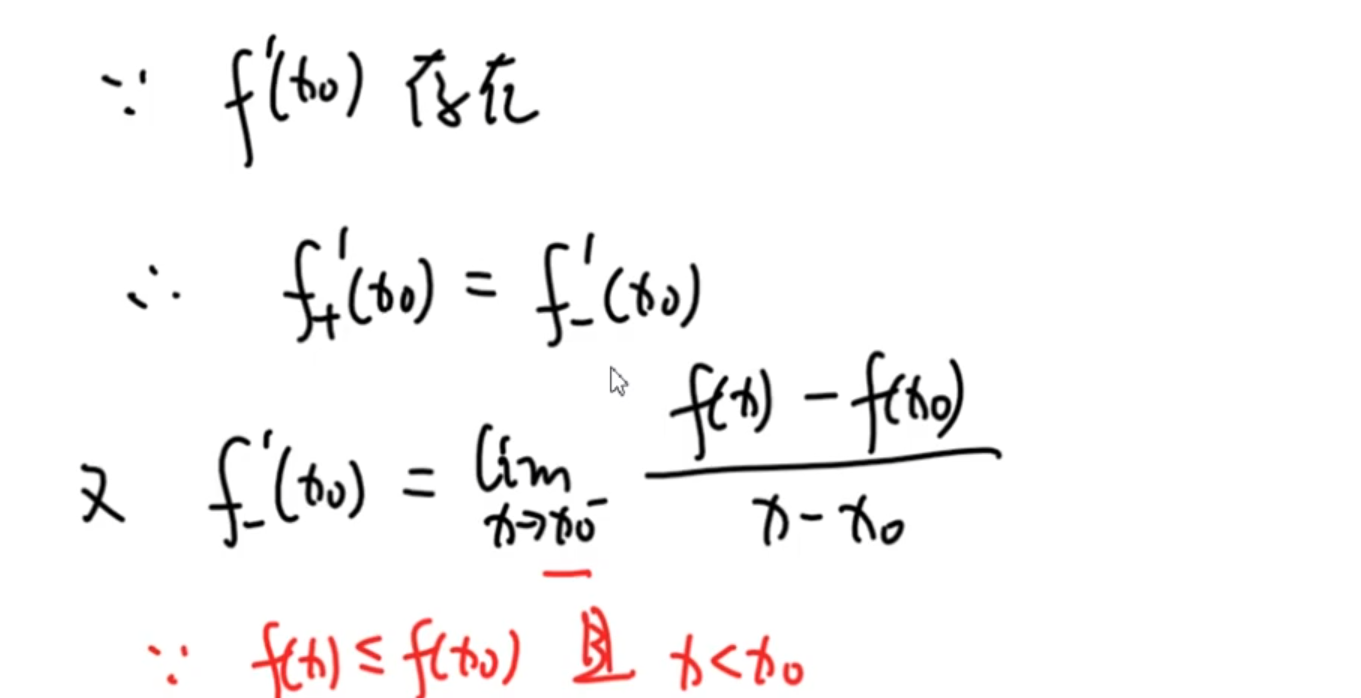 ∵ f'(x₀) 存在
∴ f₊'(x₀) = f₋'(x₀)
又 f₋'(x₀) = lim_{x→x₀⁻} \frac{f(x) - f(x₀)}{x - x₀}
∵ f(x) ≤ f(x₀) 且 x < x₀